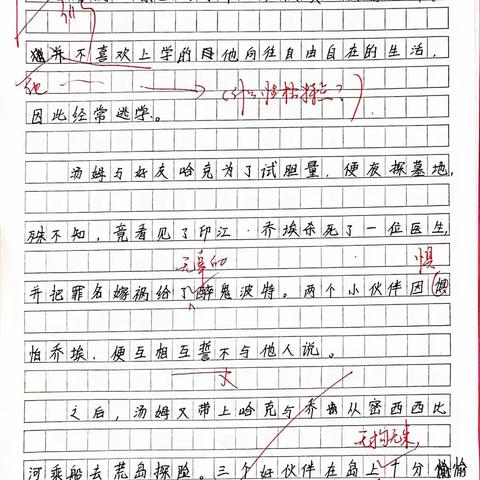 他
并不喜欢上学的他向往自由自在的生活，
他 （什么性格特点？）
因此经常逃学。
汤姆与好友哈克为了试胆量，便夜探墓地，
殊不知，竟看见了印江·乔埃杀死了一位医生，
无辜的 惧
并把罪名嫁祸给了醉鬼波特。两个小伙伴因惧
怕乔埃，便互相互誓不与他人说。
之后，汤姆又带上哈克与乔 从密西西比
无拘无束，
河乘船去荒岛探险。三个好伙伴在岛上十分愉